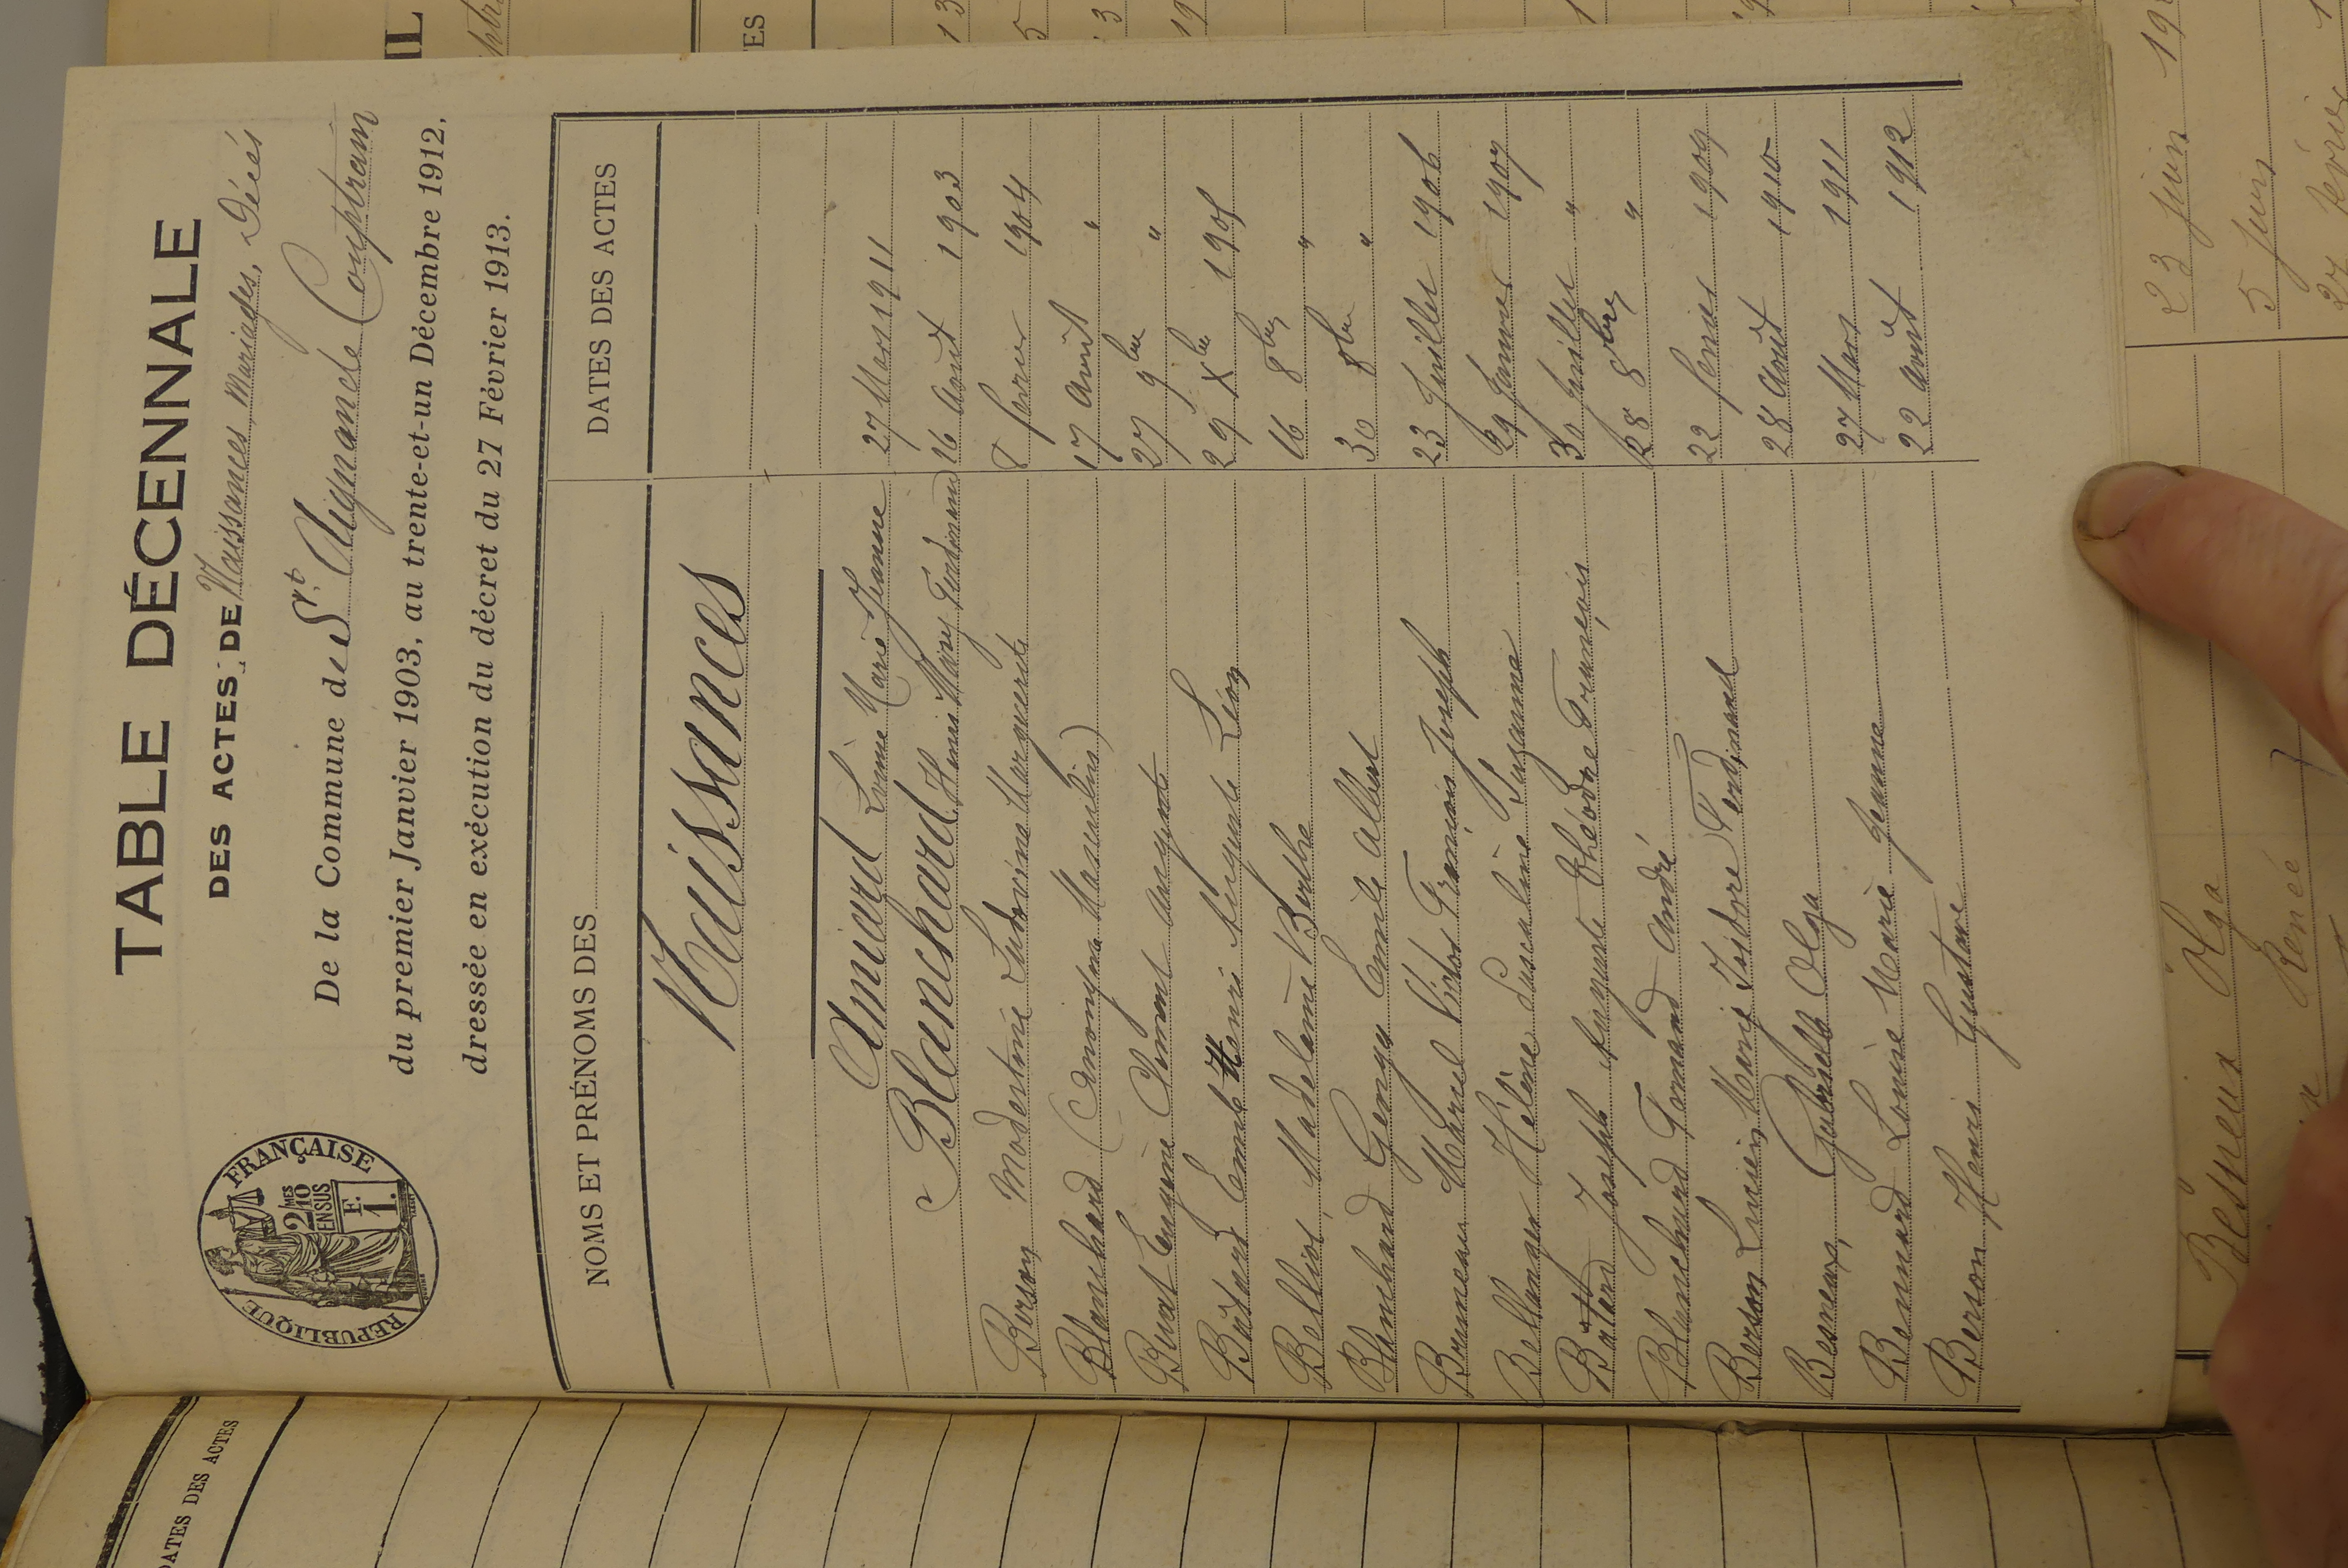 TABLE DÉCENNALE
DES ACTES DE Naissances, Mariages, Décès
De la Commune de St. Aignan de Couptrain
du premier Janvier 1903, au trente-et-un Décembre 1912,
dressée en exécution du décret du 27 Février 1913.
RÉPUBLIQUE FRANÇAISE
2/10 MES
EN SUS
1 F.
NOMS ET PRÉNOMS DES
DATES DES ACTES
Naissances
Amiard Louise Marie Jeanne 27 Mars 1911
Blanchard Henri Mary Ferdinand 16 Aout 1903
Berson Modestine Ludovina Marguerite 8 fevrier 1904
Blanchard (Anonyme Masculin) 17 Août "
Buat Eugène Clément Auguste 27 9bre "
Batard Emile Henri Auguste Léon 29 Xbre 1905
Belliot Madeleine Berthe 16 8bre "
Blanchard Georges Emile Albert 30 8bre "
Bruneau Marcel Victor François Joseph 23 Juillet 1906
Bellanger Hélène Pascaline Suzanne 29 Janvier 1907
Batard Joseph Auguste Théodore François 30 Juillet "
Blanchard Fernand André 28 8bre "
Berson Lucien Marie Isidore Ferdinand 22 fevrier 1909
Besneux Gabrielle Olga 28 Aout 1910
Bennard Louise Marie Jeanne 27 Mars 1911
Berson Henri Gustave 22 Août 1912
DATES DES ACTES
23 Juin
5 Juin
Besneux Olga
Renée